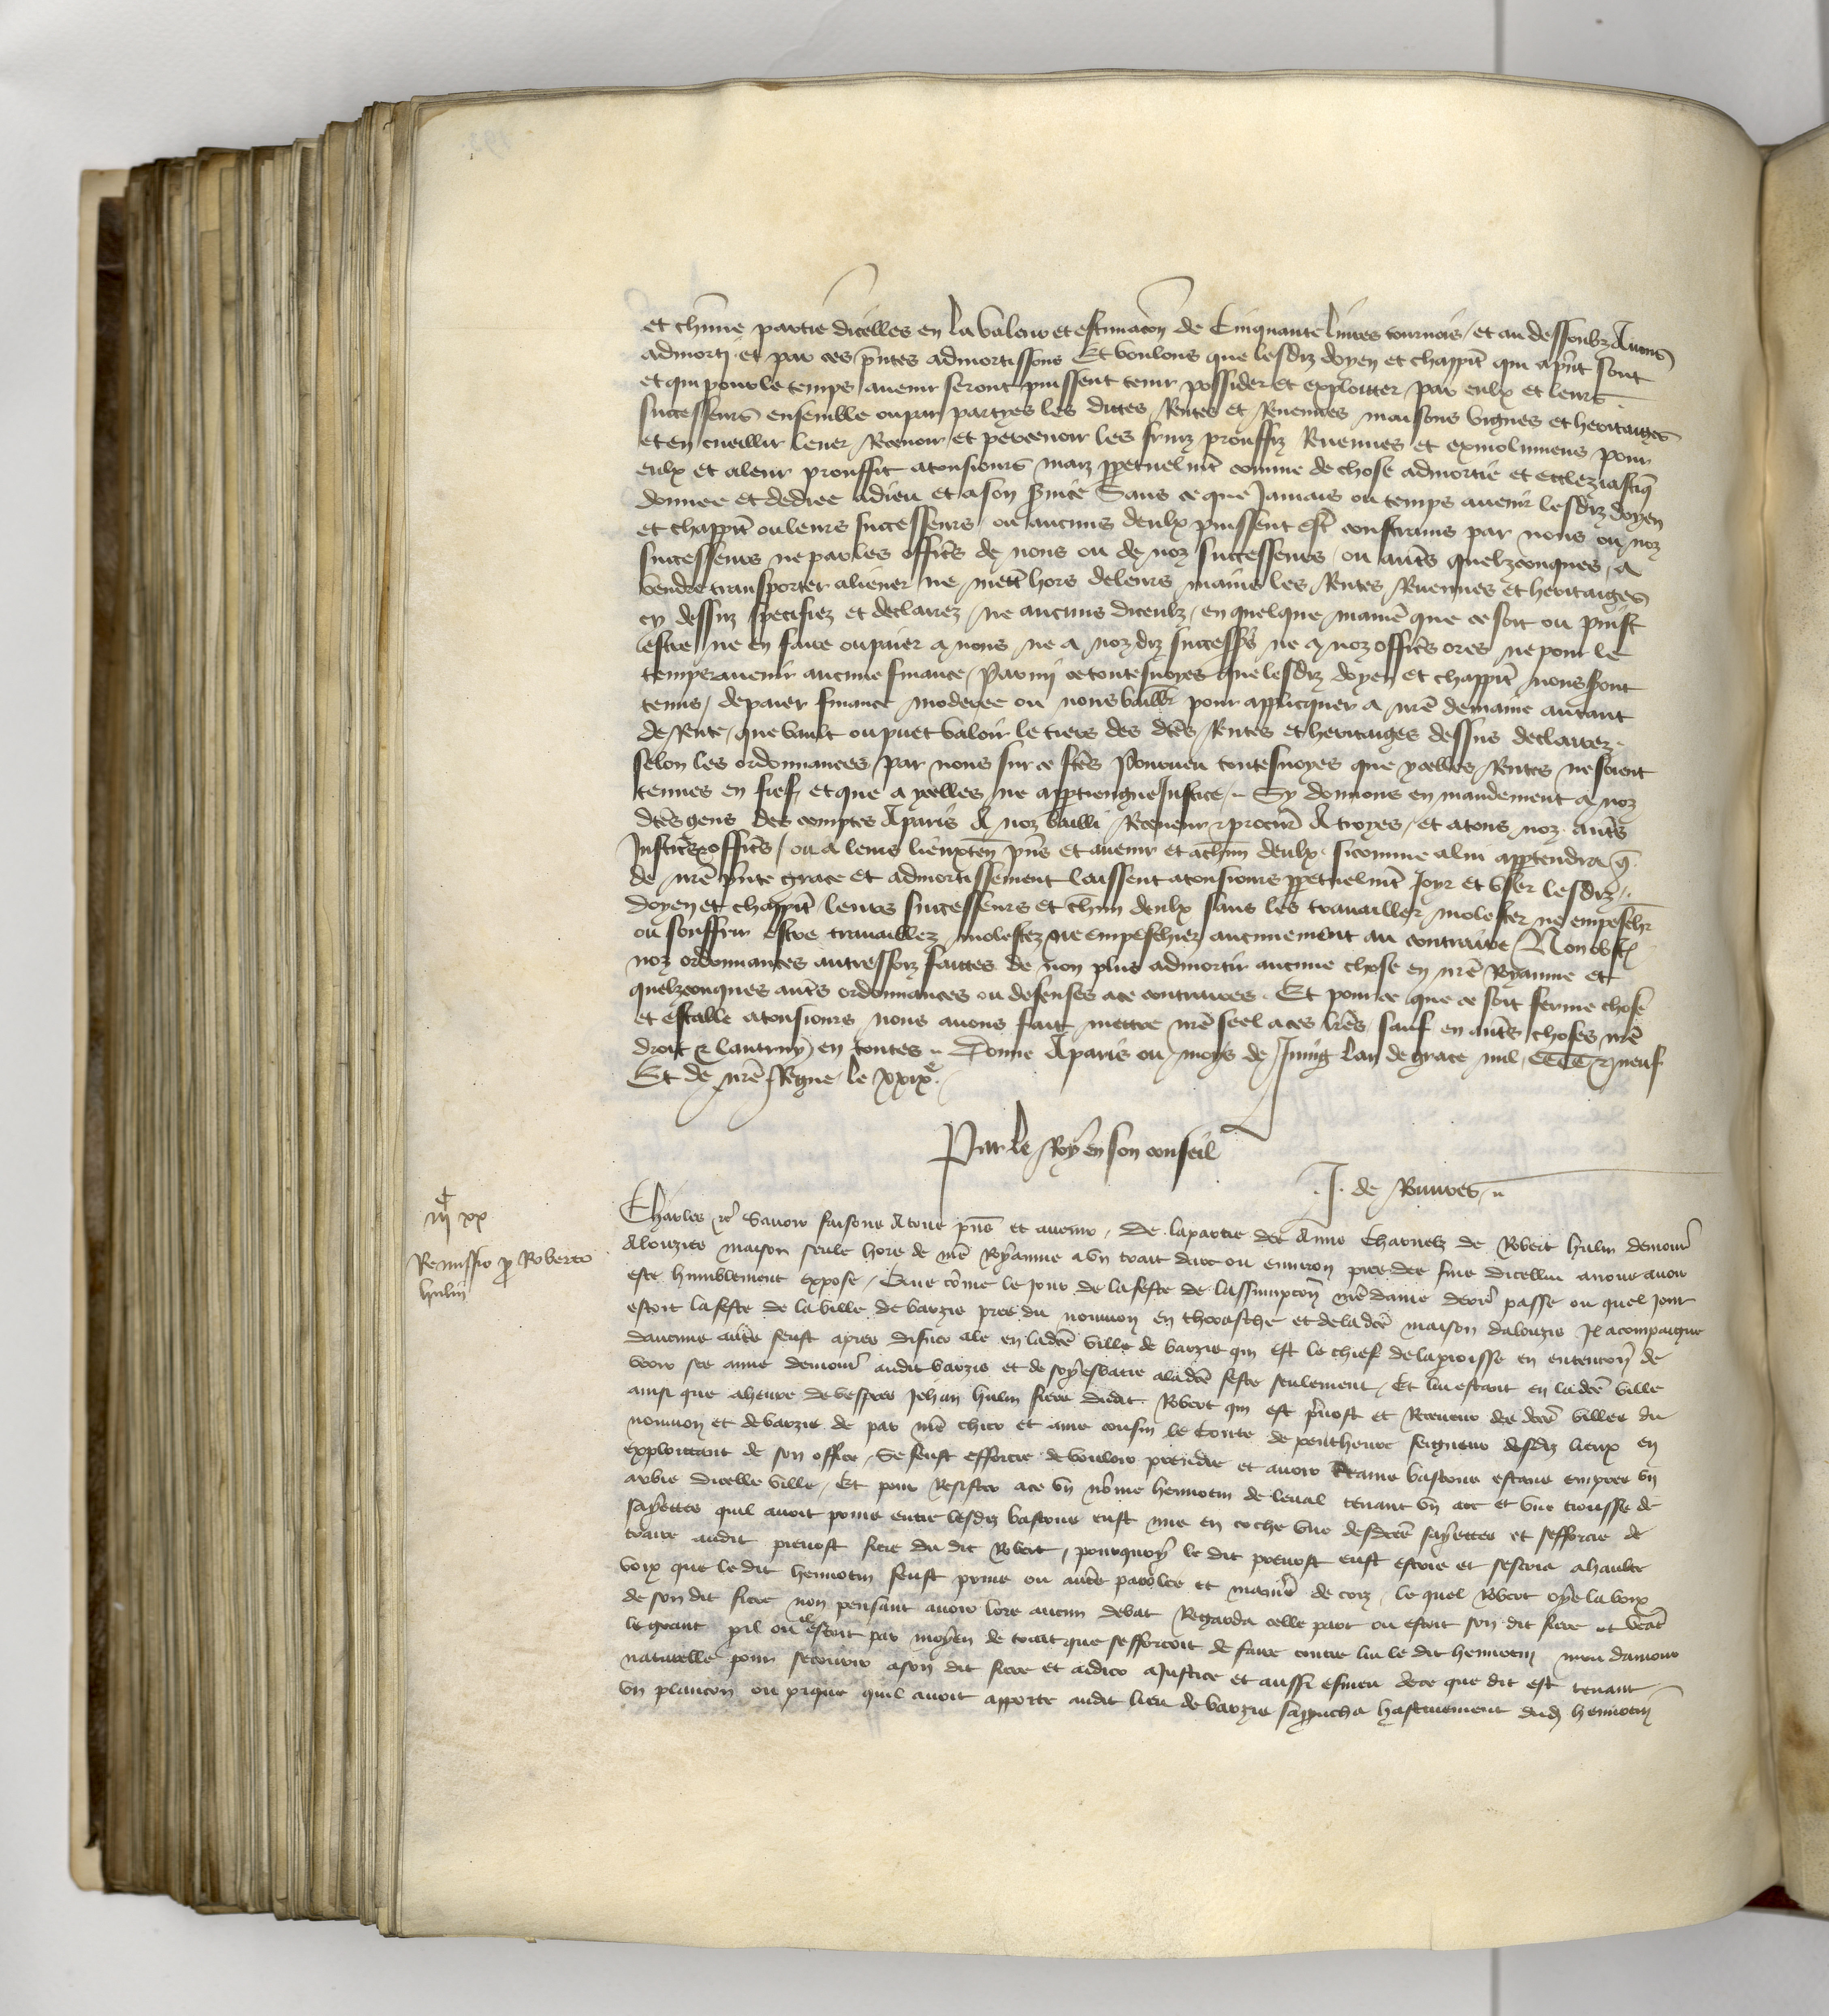 et chũne partie dicelles en la valeur et estimacõn de Cinquante liures tournois / et au dessoubz Auons
admorti et par ces p̃ntes admortissons Et voulons que lesdiz doyen et chappit̃ qui a p̃nt sont
et qui pour le temps auenir seront puissent tenir possider et exploitter par eulx et leurs
successeurs ensemble ou par partyes les dites Rentes et Reuenues maisons vignes et heritaiges
et en cueillir leuer Receuoir et perceuoir les fruiz prouffiz Reuenues et exmolumens pour
eulx et a leur prouffit a tousiours maiz ꝑpetuelmt̃ comme de chose admortie et eccleziastiq̃
donnee et dediee a dieu et a son s̃uice Sans ce que Jamais ou temps auenir lesdiz doyen
et chappit̃ ou leurs successeurs ou aucuns deulx puissent estr̃ constrains par nous ou noz
successeurs ne par les offic̃s de nous ou de noz successeurs / ou aut̃s quelzconques / a
vendre transporter aliener ne mett̃ hors de leurs mains les Rentes Reuenues et heritaiges
cy dessuz specifiez et declairez / ne aucuns diceulz / en quelque manie᷑ que ce soit ou puist
estre ne en faire ou paier a nous ne a noz diz success̃rs ne a noz offic̃s ores ne pour le
temps auenir aucune finance / Parmi ce toutesuoyes que lesdiz doyen et chappit̃ nous sont
tenus / de paier finance moderee ou nous baillr̃ pour applicquer a nr̃e demaine autant
de Rente / que vault ou puet valoir le tiers des dc̃es Rentes et heritaiges dessus declairez
selon les ordonnances par nous sur ce fc̃es Pourueu toutesuoyes que ycelles Rentes ne soient
tenues en fief / et que a ycelles ne appartiengne Justice / Sy donnons en mandement a noz
dc̃es gens des comptes A paris A noz bailli Receueur ⁊ procur̃ A troyes / et a tous noz aut̃s
Justic̃s ⁊ offic̃s / ou a leurs lieuxten̄ p̃ns et auenir et a chũn deulx sicomme a lui appartendra q̃
de nr̃e p̃nte grace et admortissement laissent a tousiours ꝑpetuelmt̃ Joyr et vser lesdiz
doyen et chappit̃ leurs successeurs et chũn deulx sans les trauailler molester ne empeschr̃
ou souffrir estre trauaillez molestez ne empeschiez aucunement au contraire Non obst̃
noz ordonnances autresfoiz faites de non plus admortir aucune chose en nr̃e Royaume et
quelzconques aut̃s ordonnances ou defenses a ce contraires. Et pour ce que ce soit ferme chose
et estable a tousiours nous auons fait mettre nr̃e seel a ces lr̃es sauf en aut̃s choses nr̃e
droit ⁊ lautruy en toutes Donne A paris ou moys de Juing lan de grace mil CCCC ⁊ neuf
Et de nr̃e Regne le xxixe
Par le Roy en son conseil
J. de Rouures
iiijxx
Remissio ꝓ Roberto
hulin
Charles &c Sauoir faisons A tous p̃ns et auenir / De la partie des Amis Charnelz de Robert hulin demour̃
A louzies maison seule hors de nr̃e Royaume a vn trait darc ou enuiron pres des fins dicellui a nous auoir
este humblement expose / Que cõme le Jour de la feste de lassumpcõn nr̃e dame derr̃ passe ou quel Jour
estoit la feste de la ville de barzis pres du nouuion en therasche et de la dc̃e maison dalouzis Jl acompaigne
daucuns autres feust apres disner ale en la dc̃e ville de barzis qui est le chief de la paroisse en entencõn de
veoir ses amis demour̃ audit barzis et de soy esbatre a la dc̃e feste seulement / Et lui estant en la dc̃e ville
ainsi que a heure de vespres Jehan hulin frere dudit Robert qui est p̃uost et Receueur des dc̃es villes du
nouuion et de barzis de par nr̃e chier et ame cousin le Conte de penthieure seigneur desdiz lieux en
exploittant de son office / Se feust efforcie de vouloir prendre et auoir c̃tains bastons estans empres vn
arbre dicelle ville / Et pour Resister a ce vn nõme hennotin de leual tenant vn arc et vne trousse de
sayettes quil auoit prins entre lesdiz bastons eust mis en coche vne desdc̃es sayettes et sefforcie de
traire audit preuost frere du dit Robert / pourquoy le dit preuost eust escrie et sescria a haulte
voix que le dit hennotin feust prins ou autres parolles et manier̃ de corz / le quel Robert oye la voix
de son dit frere non pensant auoir lors aucun debat Regarda celle part ou estoit son dit frere et veat̃
le grant ꝑil ou il estoit par moyen de trait que sefforcoit de faire contre lui le dit hennotin meu damour
naturelle pour secourir a son dit frere et aidier a Justice et aussi esmeu de ce que dit est tenant
vn plancon ou pique quil auoit apporte audit lieu de barzis sapproucha hastiuement dudit hennotin